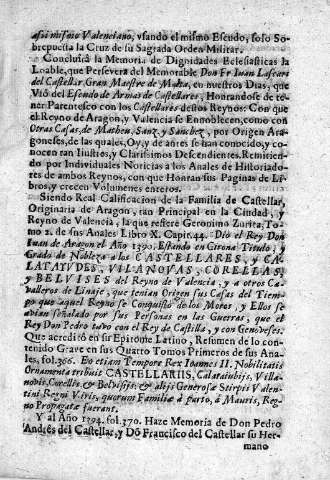 assi mismo Valenciano, vsando el mismo Escudo, solo Sobrepuesta la Cruz de su Sagrada Orden Militar.
Concluirá la Memoria de Dignidades Eclesiasticas la
Loable, que Persevera del Memorable Don Fr. Iuan Lascars
del Castellar Gran Maestre de Malta, en nuestros Dias, que
Vsó del Escudo de Armas de Castellares, Honrandose de tener Parentesco con los Castellares destos Reynos: Con que
el Reyno de Aragon, y Valencia se Ennoblecen, como con
Otras Casas, de Matheu, Sanz, y Sanchez, por Origen Aragoneses, de las quales, Oy, y de antes se han conocido, y conocen tan Ilustres, y Clarissimos Descendientes, Remitiendo por Individuales Noticias a los Anales de Historiadores de ambos Reynos, con que Honran sus Paginas de Libros, y crecen Volumenes enteros.
Siendo Real Calificacion de la Familia de Castellar,
Originaria de Aragon, tan Principal en la Ciudad, y
Reyno de Valencia, la que refiere Geronimo Zurita, Tomo 2. de sus Anales Libro X. Capit. 44. Dió el Rey Don
Iuan de Aragon el Año 1390. Estando en Girona Titulo, y
Grado de Nobleza a los CASTELLARES, y CALATAYVDES, VILANOVAS, CORELLAS,
y BELVISES del Reyno de Valencia, y a otros Cavalleros de Linaje, que tenian Origen sus Casas del Tiempo que aquel Reyno se Conquistó de los Moros, y Ellos se
avian señalado por sus Personas en las Guerras, que el
Rey Don Pedro tuvo con el Rey de Castilla, y con Genoveses.
Que acreditó en su Epitome Latino, Resumen de lo contenido Grave en sus Quatro Tomos Primeros de sus Anales, fol. 366. Eo etiam Tempore Rex Ioannes II. Nobilitatis
Ornamenta tribuis CASTELLARIIS, Calataiubijs, Villanovis, Corellis, & Belvisijs: & alijs Generosæ Stirpis Valentini Regni Viris, quorum Familiæ à parto, à Mauris, Regno Propagatæ fuerant.
Y al Año 1394. fol. 370. Haze Memoria de Don Pedro
Andrés del Castellar, y Dõ Francisco del Castellar su Hermano